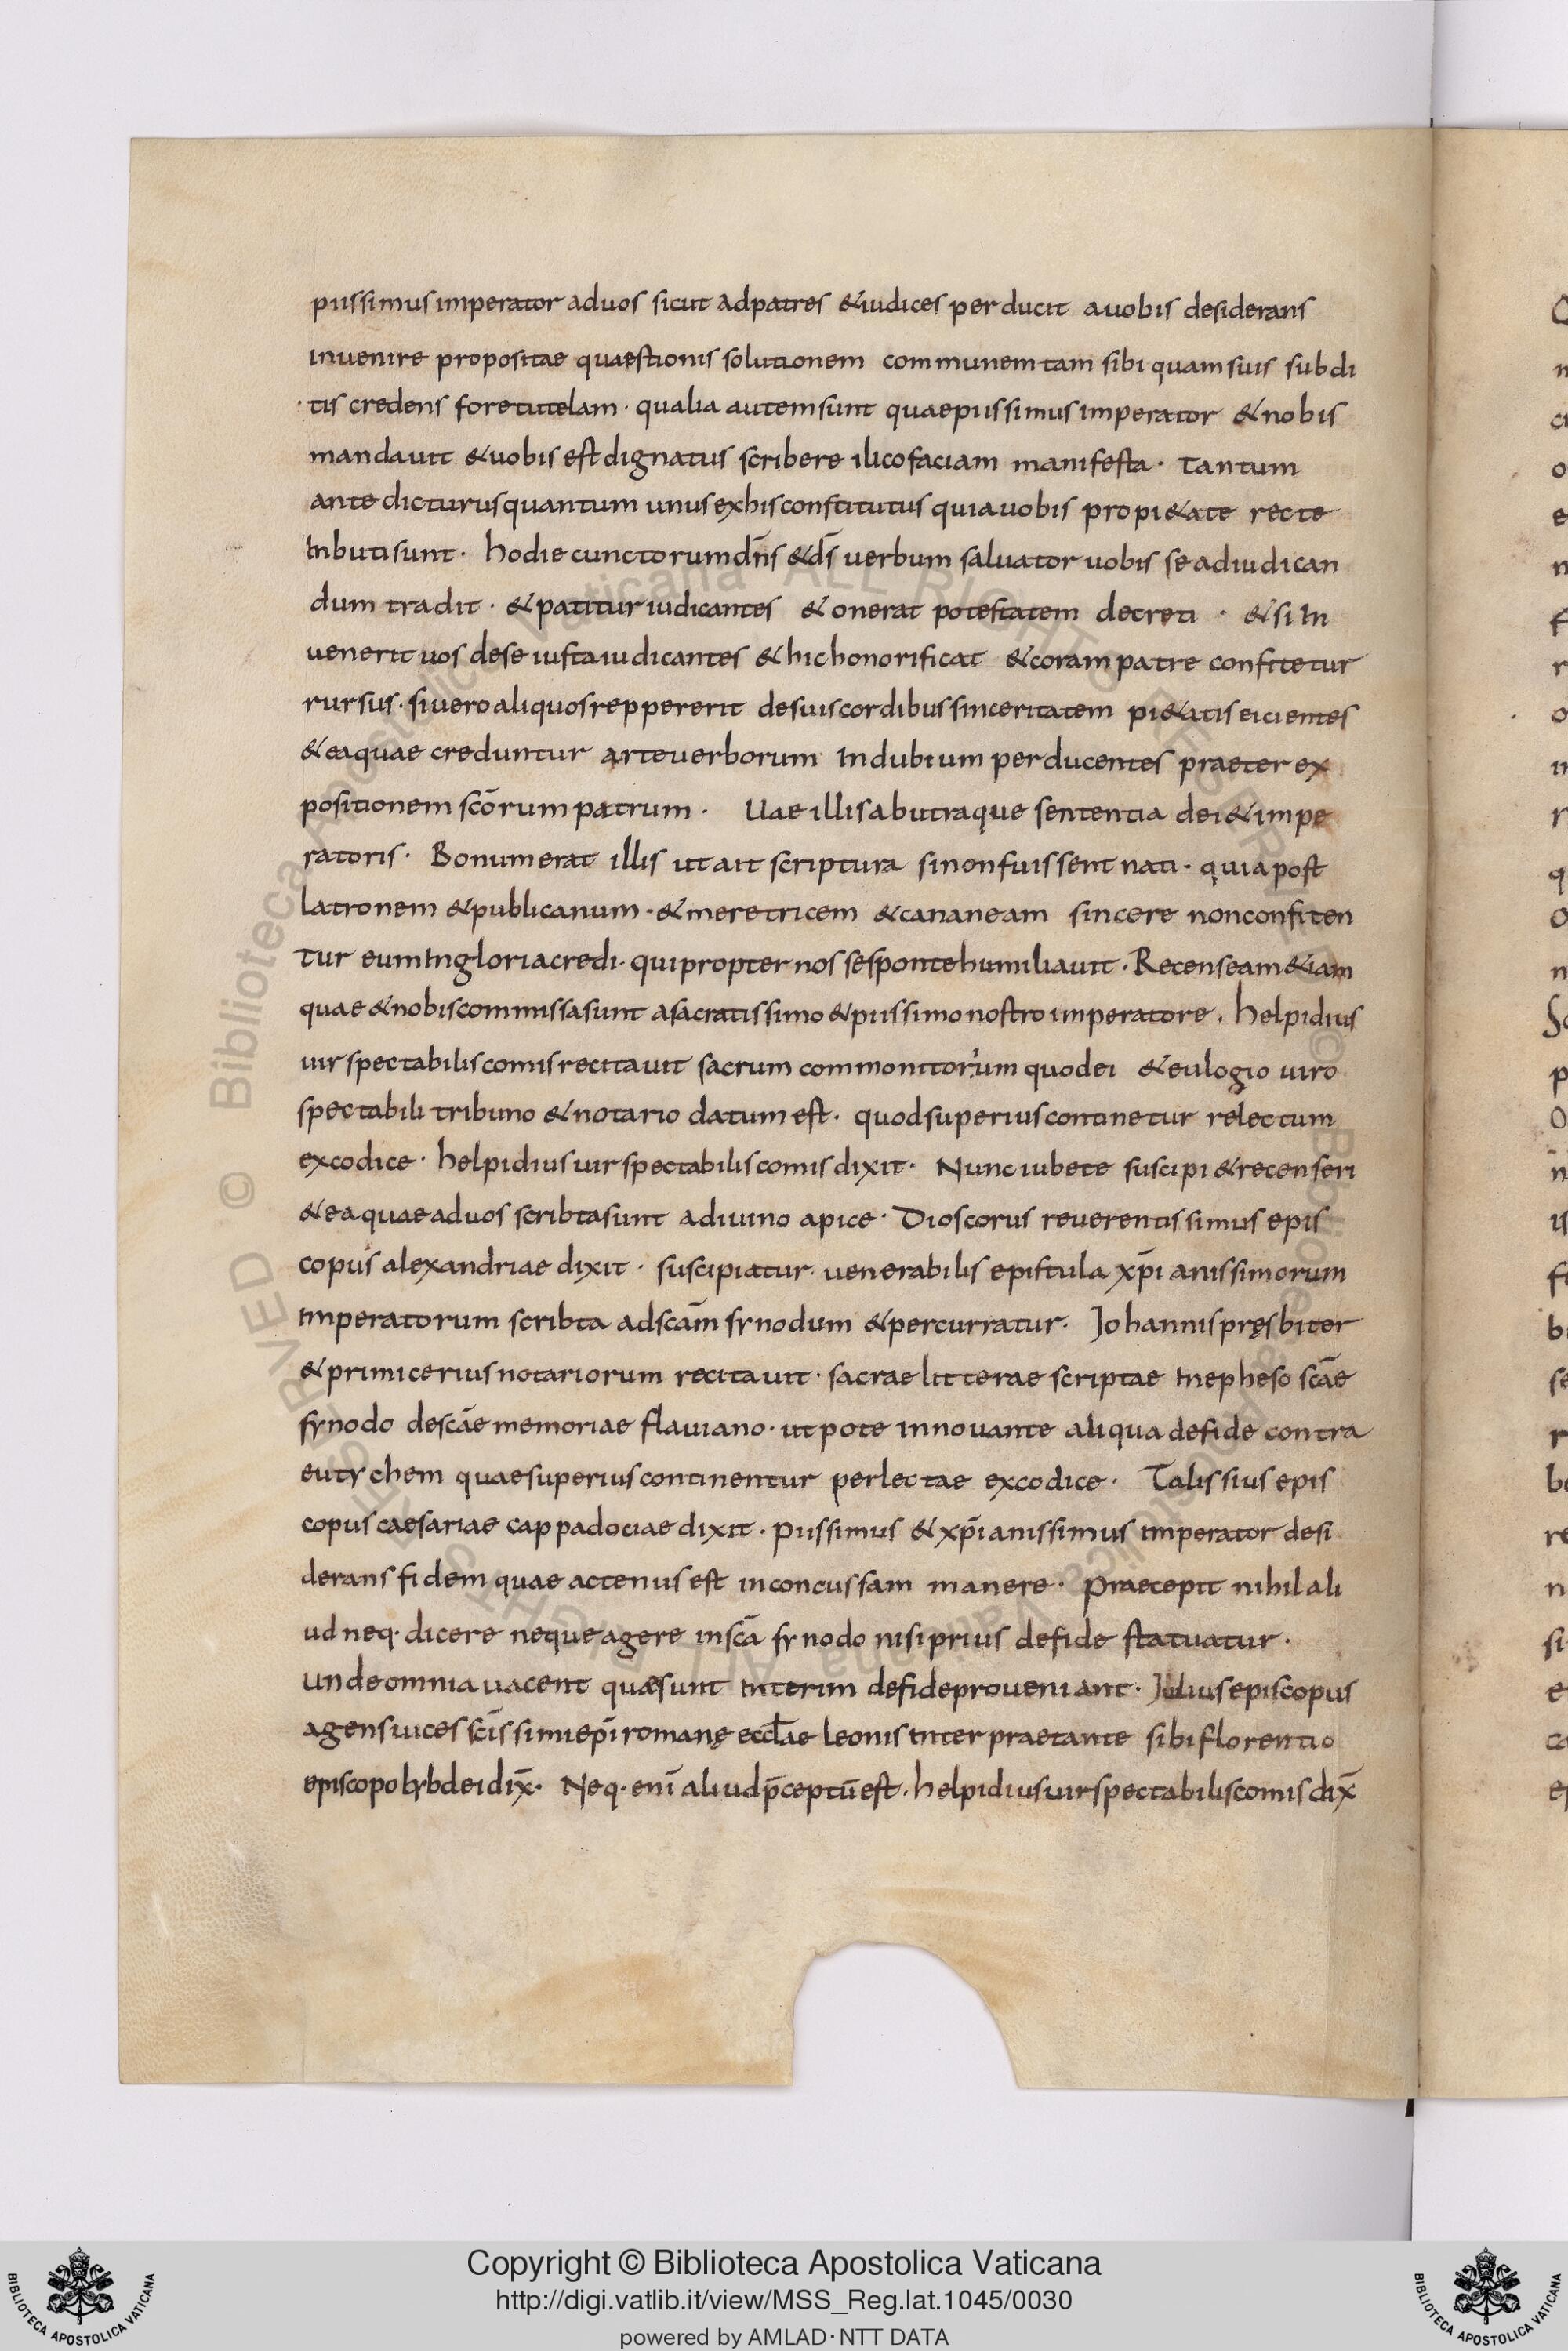 piissimus imperator ad uos sicut ad patres & iudices perducit a uobis desiderans
inuenire propositae quaestionis solutionem communem tam sibi quam suis subdi
tis credens fore tutelam · qualia autem sunt quae piissimus imperator & nobis
mandauit & uobis est dignatus scribere ilico faciam manifesta · Tantum
ante dicturus quantum unus ex his constitutus quia uobis pro pi&ate recte
tributi sunt · hodie cunctorum dn̄s & ds̄ uerbum saluator uobis se ad iudican
dum tradit · & patitur iudicantes & onerat potestatem decreti · & si In
uenerit uos de se iusta iudicantes & hic honorificat & coram patre confitetur
rursus · si uero aliquos reppererit de suis cordibus sinceritatem pi&atis eicientes
& ea quae creduntur arte uerborum In dubium perducentes praeter ex
positionem scōrum patrum · Uae illis ab utraque sententia dei & impe
ratoris · Bonum erat illis ut ait scriptura si non fuissent nati · quia post
latronem & publicanum · & meretricem & cananeam sincere non confiten
tur eum In gloria credi · qui propter nos se sponte humiliauit · Recenseam &iam
quae & nobis commissa sunt a sacratissimo & piissimo nostro imperatore · helpidius
uir spectabilis comis recitauit sacrum commonitorium quod ei & eulogio uiro
spectabili tribuno & notario datum est · quod superius continetur relectum
ex codice · helpidius uir spectabilis comis dixit · Nunc iubete suscipi & recenseri
& ea quae ad uos scribta sunt a diuino apice · Dioscorus reuerentissimus epis
copus alexandriae dixit · suscipiatur · uenerabilis epistula xp̄ianissimorum
Imperatorum scribta ad scām synodum & percurratur · Johannis pręsbiter
& primicerius notariorum recitauit · sacrae litterae scriptae In epheso scāe
synodo de scāe memoriae flauiano · ut pote innouante aliqua de fide contra
eutychem quae superius continentur perlectae ex codice · Talissius epis
copus caesariae cappadociae dixit · Piissimus & xp̄ianissimus Imperator desi
derans fidem quae actenus est inconcussam manere · Praecepit nihil ali
ud neq· dicere neque agere in scā synodo nisi prius de fide statuatur ·
unde omnia uacent quæ sunt Interim de fide proueniant · Julius episcopus
agens uices scīssimi ep̄i romanę eccłae leonis Inter praetante sibi florentio
episcopo lybdei dix̄ · Neq· enī aliud p̄ceptū est · helpidius uir spectabilis comis dix̄
Copyright © Biblioteca Apostolica Vaticana
http://digi.vatlib.it/view/MSS_Reg.lat.1045/0030
powered by AMLAD·NTT DATA